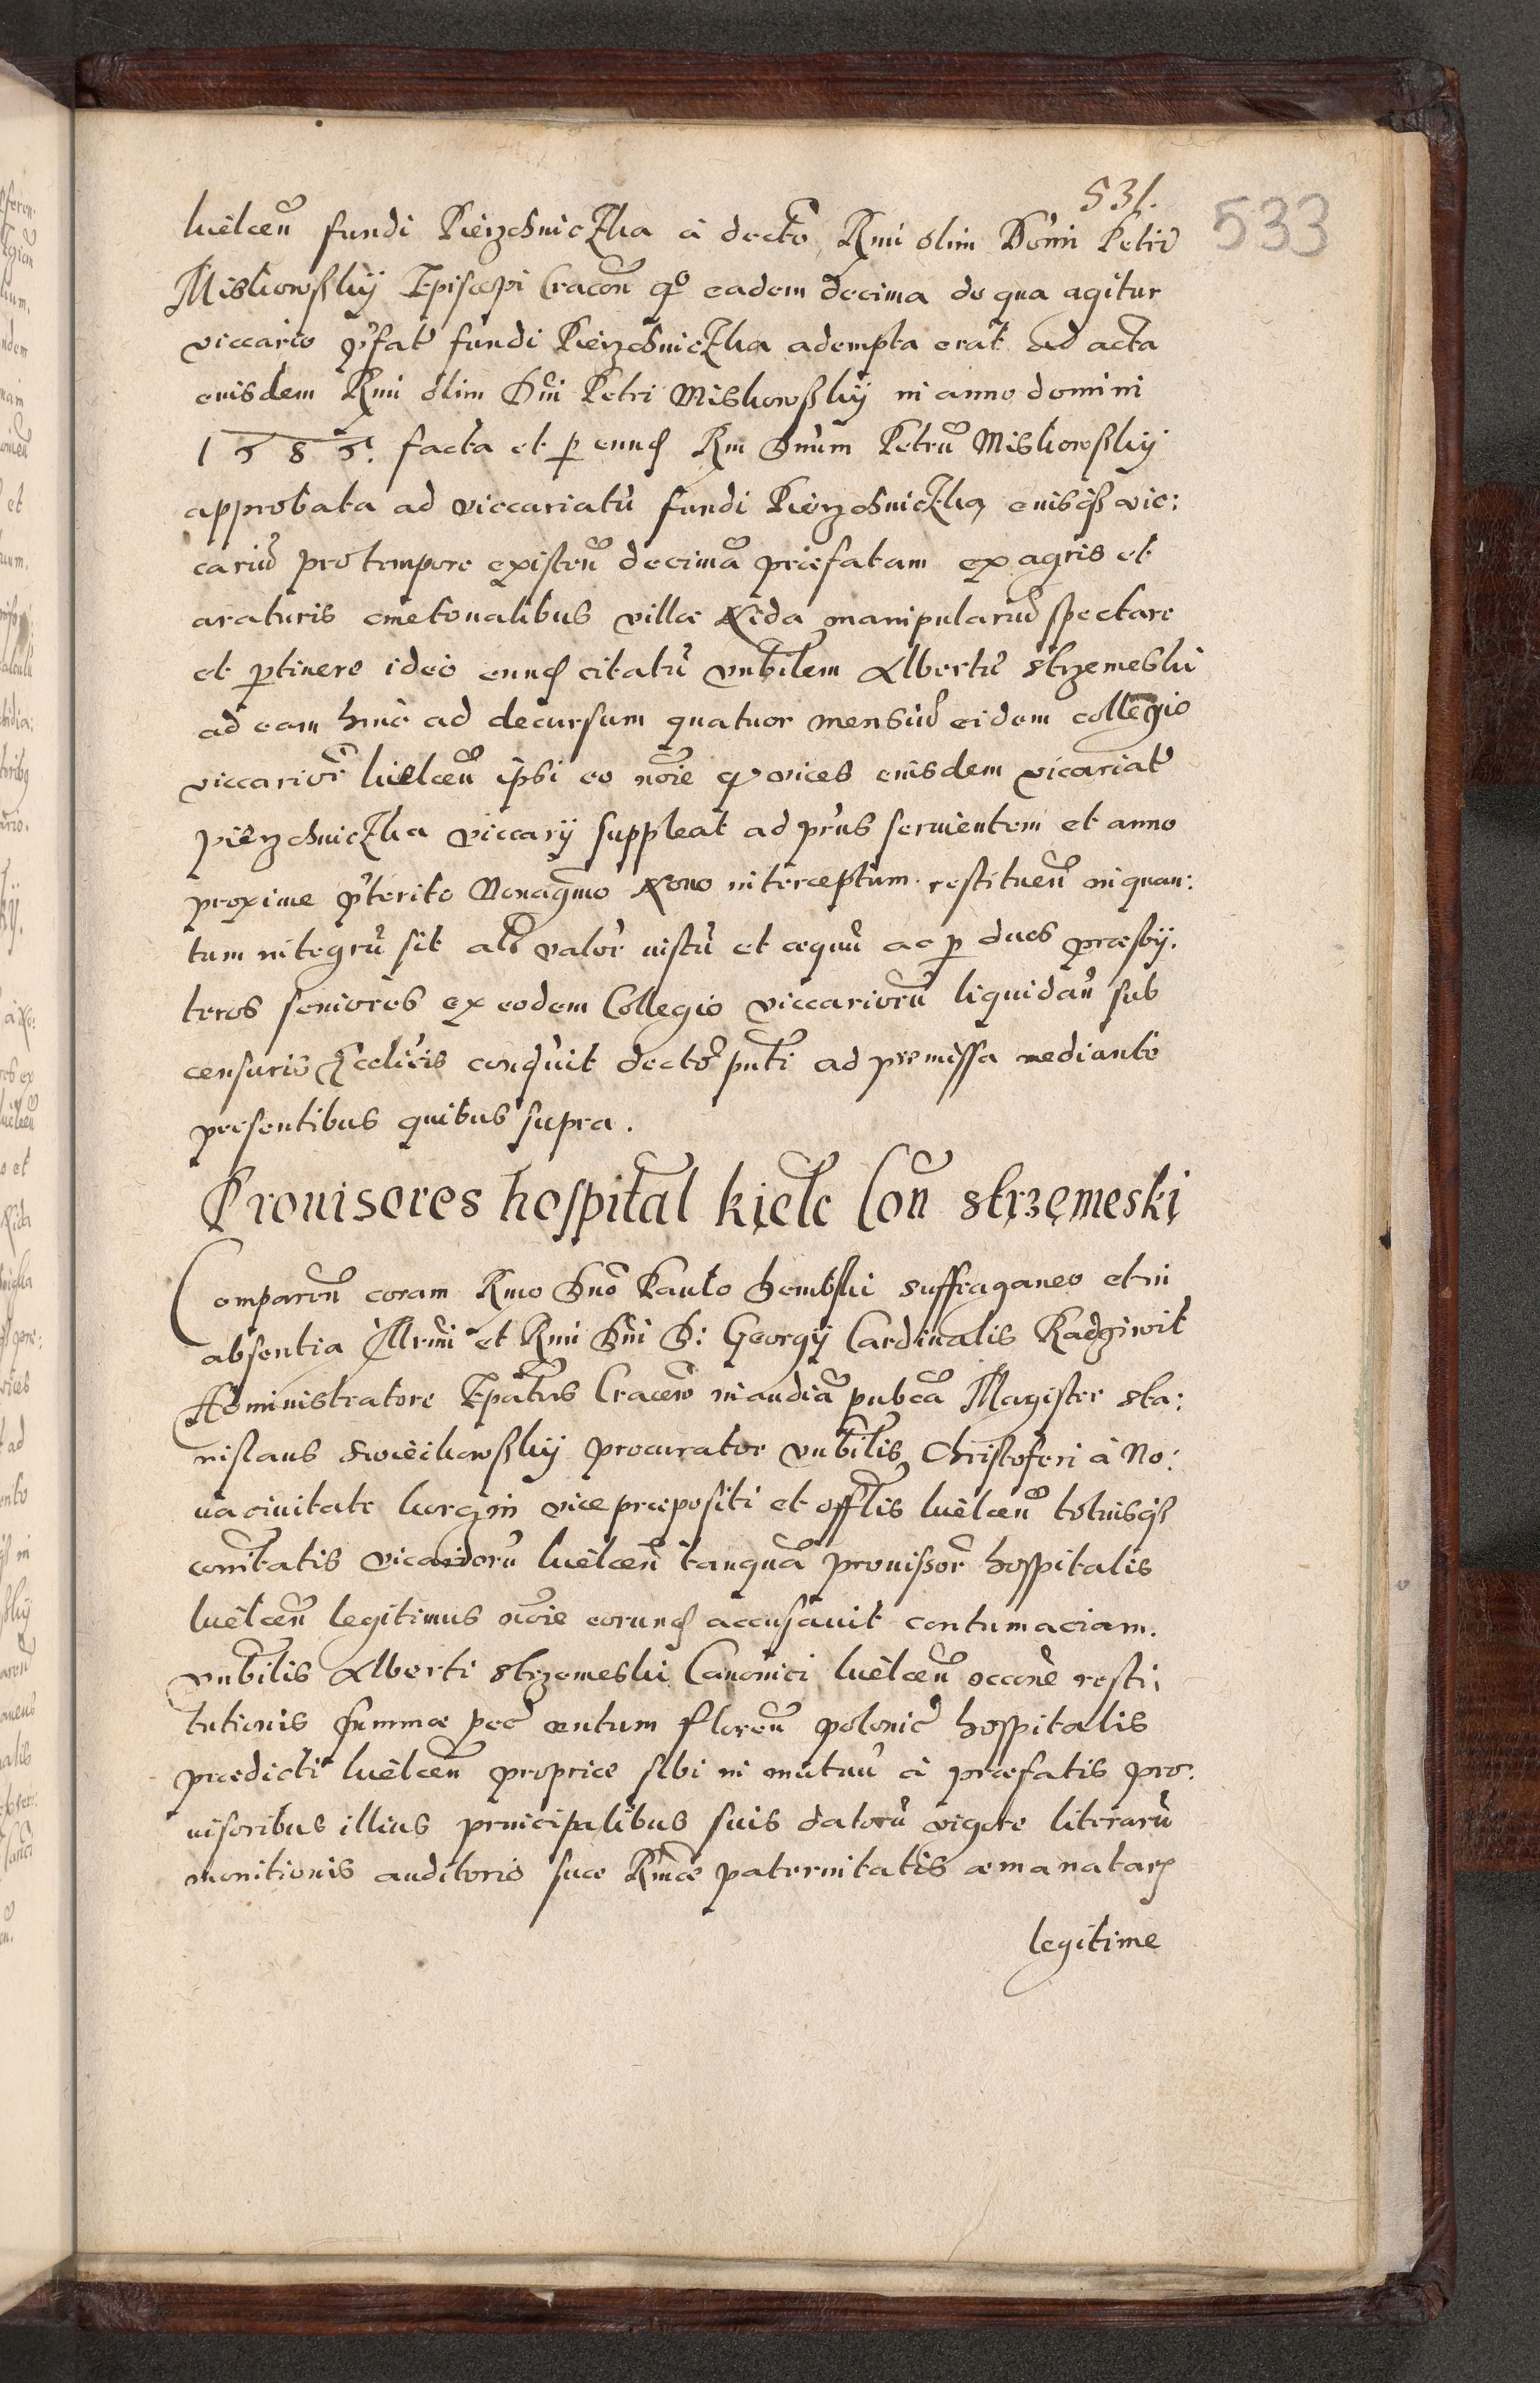 531.
533
kielcen fundi Pierzchniczka a decto Rmi olim Domi Petri
Miskowsky Episcopi Cracon quo eadem decima de qua agitur
viccario prefat fundi Pierzchniczka adempta erat ad acta
euisdem Rmi olim Dni Petri Miskowsky in anno domini
1585. facta et per eund Rm Dnum Petru Miskowsky
approbata ad viccariatu fundi Pierzchniczka euisq vic:
cariu pro tempore existen decima præfatam ex agris et
araturis cmetonalibus villæ Nida manipulariu spectare
et ptinere ideo eund citatu vnbilem Albertu Strzemeski
ad eam hinc ad decursum quatuor mensiu eidem collegio
viccarior kielcen ipsi eo noie quo vices euisdem vicariat
Pierzchniczka viccarij suppleat ad prius seruientem et anno
proxime preterito Nonagmo Nono interceptum restituen inquan:
tum integru sit als valor iustu et æquu ac p duos præsby:
teros seniores ex eodem Collegio viccarioru liquidan sub
censuris Ecclicis
ad premissa mediante
presentibus quibus supra.
Prouisores hospital kielc Con Strzemeski
Comparen coram Rmo Dno Paulo Dembski suffraganeo et in
absentia Illrmi et Rmi Dni D: Georgij Cardinalis Radziwil
Administratore Epatus Cracovien in audia pubca Magister Sta:
nislaus Swiecikowsky procurator vnbilis Christoferi a No:
ua ciuitate korczin vice præpositi et offlis kielcen totiusq
comtatis vicarioru kielcen tanqua prouissor hospitalis
kielcen legitimus noie eorund accusauit contumaciam.
vnbilis Alberti Strzemeski Canonici kielcen occone resti:
tutionis summæ pec centum floren polonic hospitalis
prædicti kielcen propriæ sibi in mutuu a præfatis pro:
uisoribus illius principalibus suis datoru vigore literaru
monitionis auditoris suæ Rmæ paternitatis æmanatar
legitime